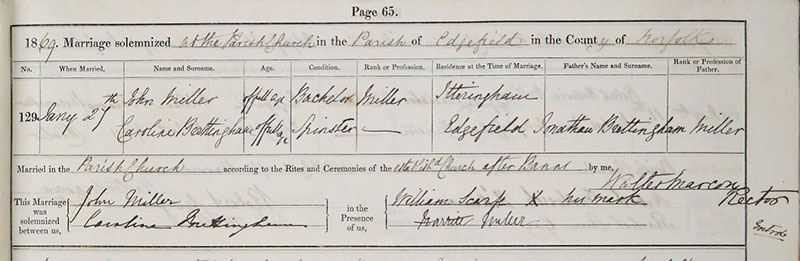 Page 65.
1869. Marriage solemnized at the Parish Church in the Parish of Edgefield in the County of Norfolk
No. When Married. Name and Surname. Age. Condition. Rank or Profession. Residence at the Time of Marriage. Father's Name and Surname. Rank or Profession of Father.
129 Jany 27th John Miller of full age Bachelor Miller Itteringham
Caroline Brettingham of full age Spinster — Edgefield Jonathan Brettingham Miller
Married in the Parish Church according to the Rites and Ceremonies of the establishd Church after Banns by me,
Walter Marcon Rector
This Marriage was solemnized between us, John Miller in the Presence of us, William Scarfe X his mark
Caroline Brettingham Harriett Miller